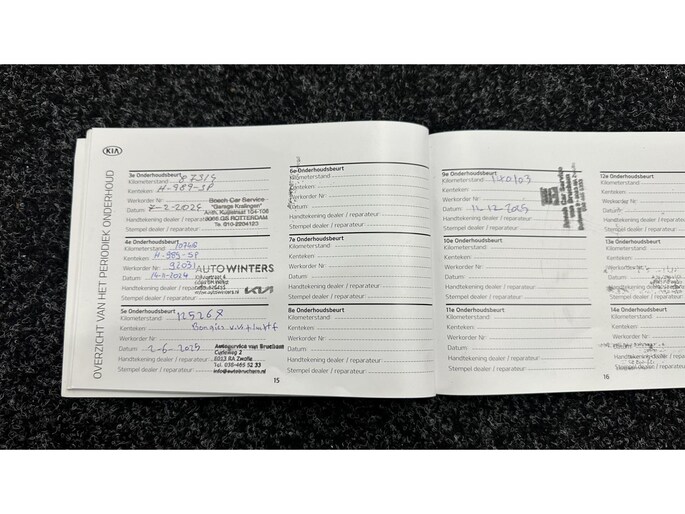 KIA
OVERZICHT VAN HET PERIODIEK ONDERHOUD
3e Onderhoudsbeurt
Kilometerstand: 87314
Kenteken: H-989-SP
Werkorder Nr:
Datum: 7-2-2024
Handtekening dealer / reparateur:
Stempel dealer / reparateur:
Bosch Car Service
"Garage Kralingen"
Anth. Kuijststraat 104-106
3066 GS ROTTERDAM
Te. 010-2204123
4e Onderhoudsbeurt
Kilometerstand:
Kenteken: H-989-SP
Werkorder Nr: 92031
Datum: 14-11-2024
Handtekening dealer / reparateur:
Stempel dealer / reparateur:
AUTO WINTERS
KIA
5e Onderhoudsbeurt
Kilometerstand: 125268
Kenteken:
Werkorder Nr:
Datum: 2-6-2025
Handtekening dealer / reparateur:
Stempel dealer / reparateur:
Autoservice van Bruchem
Curieweg 2
8013 RA Zwolle
Tel. 038-465 52 33
info@autobruchem.nl
15
6e Onderhoudsbeurt
Kilometerstand:
Kenteken:
Werkorder Nr:
Datum:
Handtekening dealer / reparateur:
Stempel dealer / reparateur:
7e Onderhoudsbeurt
Kilometerstand:
Kenteken:
Werkorder Nr:
Datum:
Handtekening dealer / reparateur:
Stempel dealer / reparateur:
8e Onderhoudsbeurt
Kilometerstand:
Kenteken:
Werkorder Nr:
Datum:
Handtekening dealer / reparateur:
Stempel dealer / reparateur:
9e Onderhoudsbeurt
Kilometerstand:
Kenteken:
Werkorder Nr:
Datum: 11-12-2025
Handtekening dealer / reparateur:
Stempel dealer / reparateur:
Bosch Car Service
van Bruchem
10e Onderhoudsbeurt
Kilometerstand:
Kenteken:
Werkorder Nr:
Datum:
Handtekening dealer / reparateur:
Stempel dealer / reparateur:
11e Onderhoudsbeurt
Kilometerstand:
Kenteken:
Werkorder Nr:
Datum:
Handtekening dealer / reparateur:
Stempel dealer / reparateur:
16
12e Onderhoudsbeurt
Kilometerstand:
Kenteken:
Werkorder Nr:
Datum:
Handtekening dealer /
Stempel dealer / reparateur
13e Onderhoudsbeurt
Kilometerstand:
Kenteken:
Werkorder Nr:
Datum:
Handtekening dealer /
Stempel dealer / reparateur:
14e Onderhoudsbeurt
Kilometerstand:
Kenteken:
Werkorder Nr:
Datum:
Handtekening dealer /
Stempel dealer / reparateur: